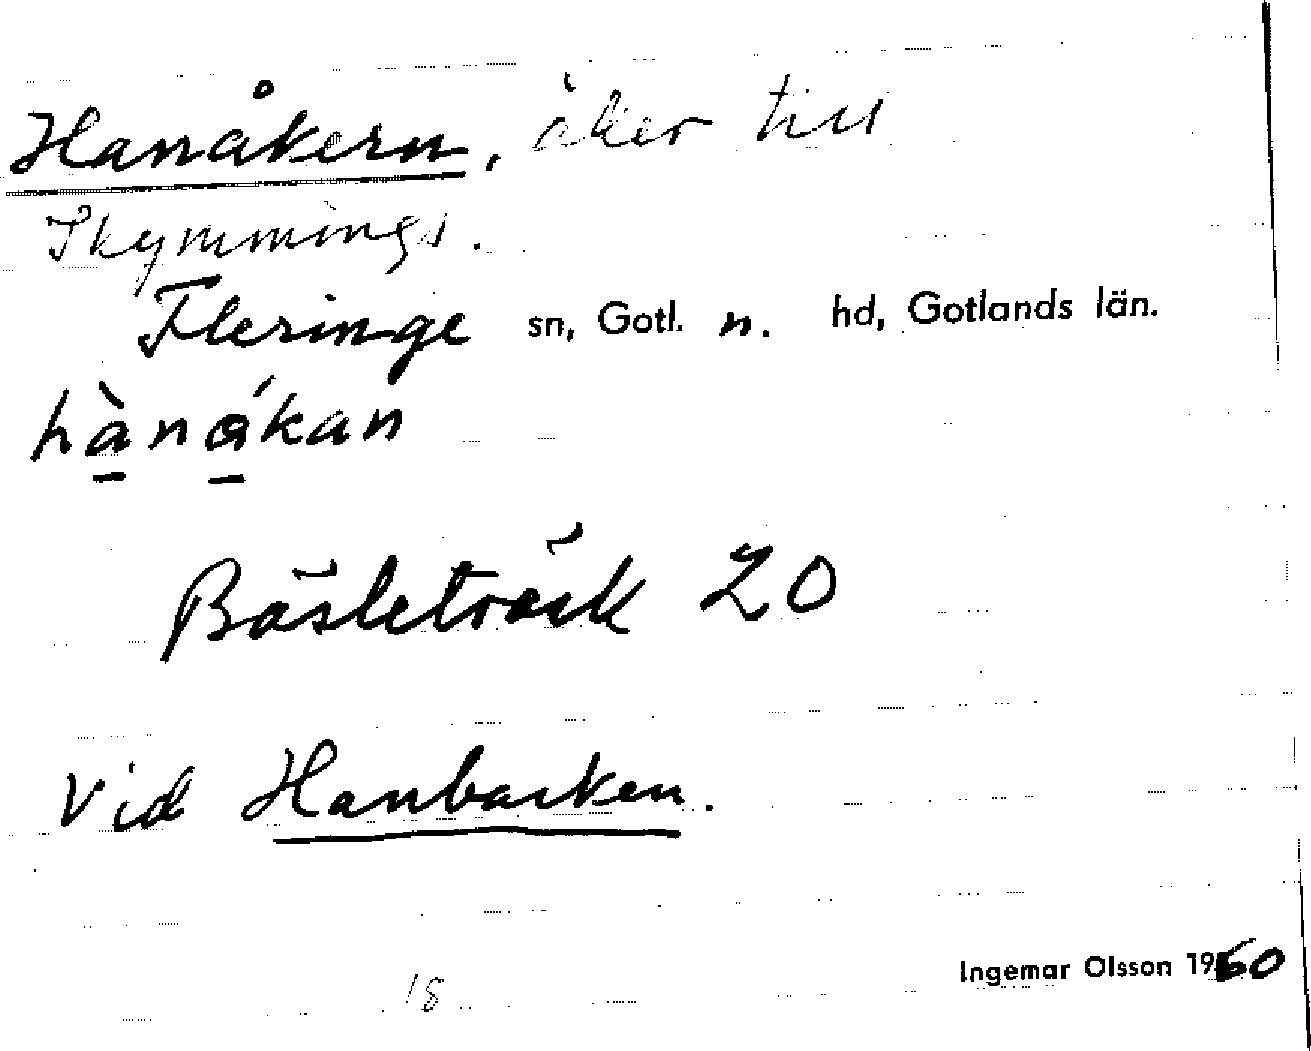 Hanåkern, åker till
Skymmings.
Fleringe sn, Gotl. n. hd, Gotlands län.
hànákan
Bästeträsk 20
Vid Hanbacken.
Ingemar Olsson 1960
18